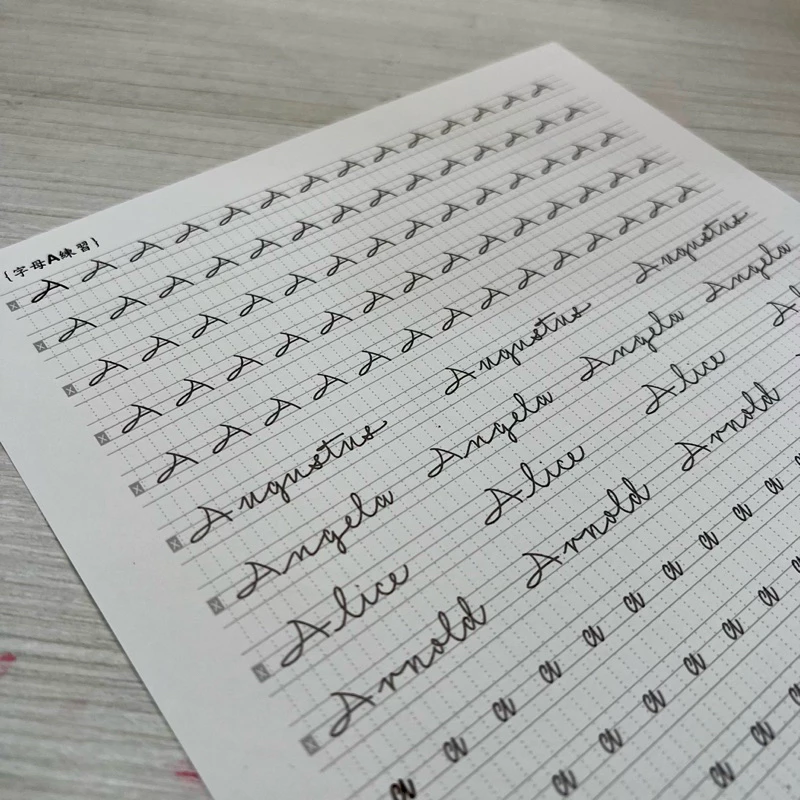 {字母A練習}
X A A A A A A A A A A A A A A
X A A A A A A A A A A A A A A
X A A A A A A A A A A A A A A
X A A A A A A A A A A A A A A
X A A A A A A A A A A A A A A
X Augustus Augustus Augustus
X Angela Angela Angela Angela
X Alice Alice Alice Al
X Arnold Arnold Arnold
a a a a a a a a a a
a a a a a a a
a a a